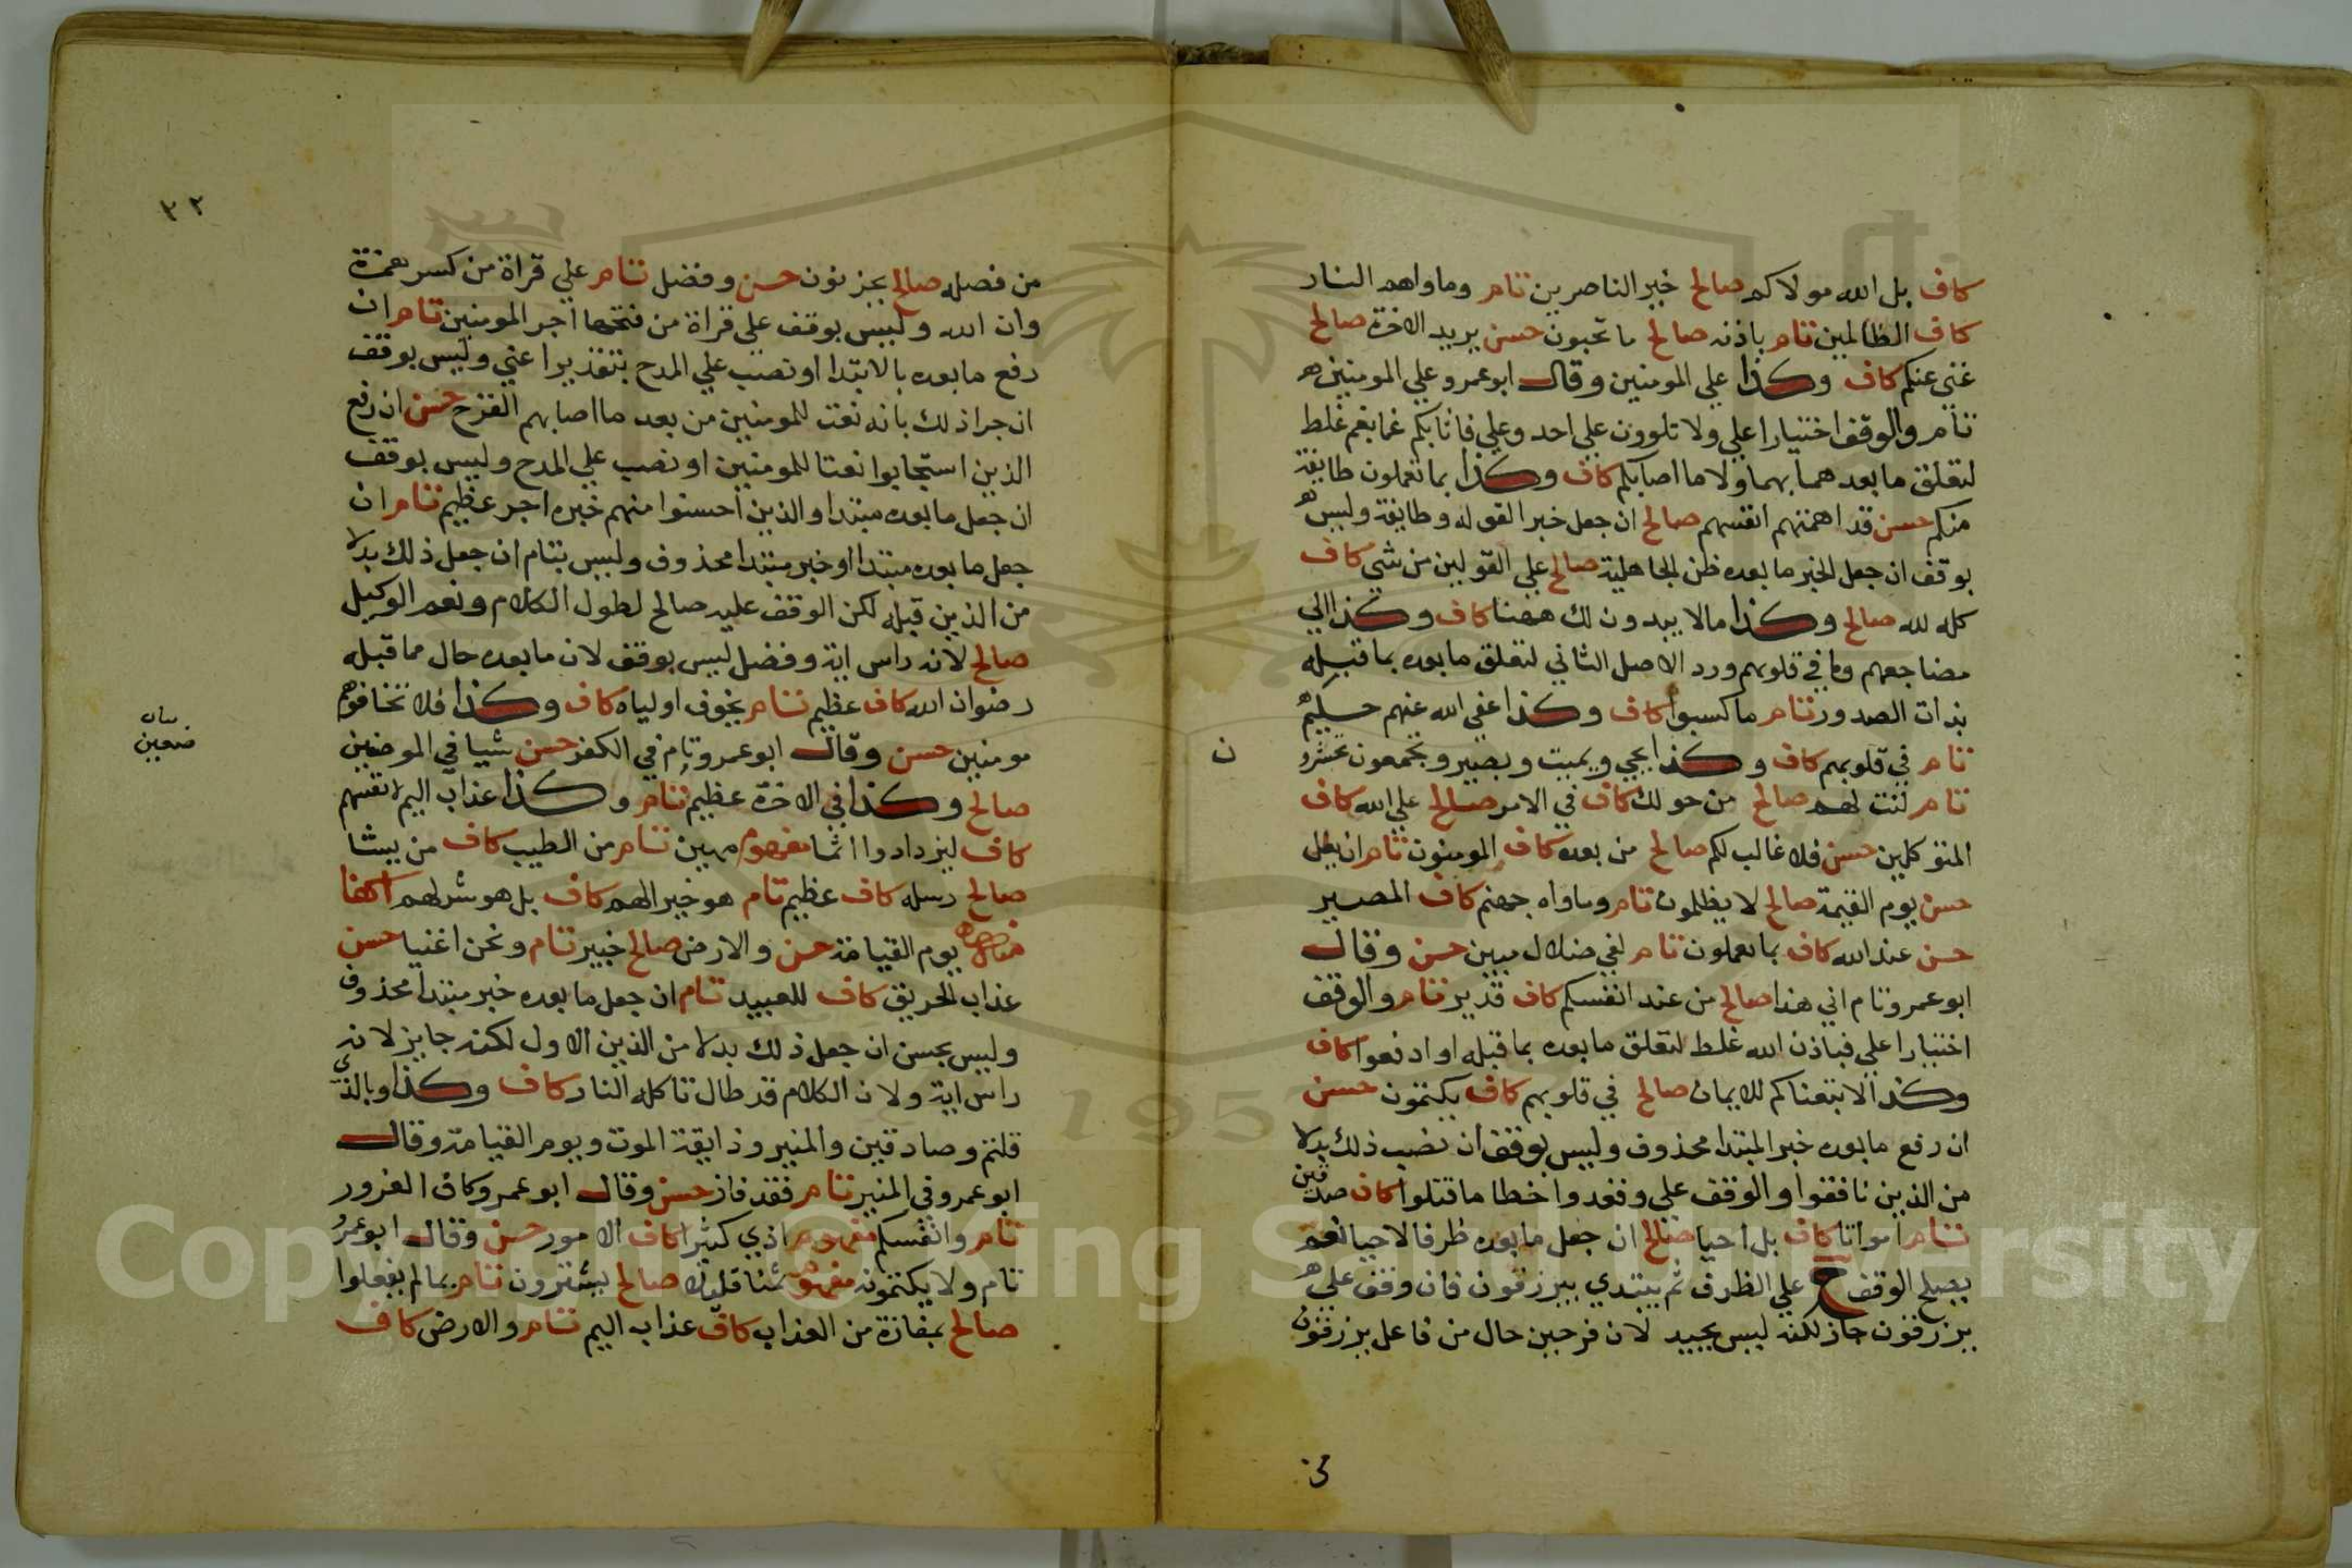 كاف بل الله مولاكم صالح خير الناصرين تام وماواهم النار
كاف الظالمين تام باذنه صالح ما تحبون حسن يريد الاخرة صالح
عنكم كاف وكذا علي المومنين وقال ابو عمرو علي المومنين
تام والوقف اختيارا علي ولا تلوون علي احد وعلي فاثابكم غما بغم غلط
لتعلق ما بعدهما بهما ولا ما اصابكم كاف وكذا بما تعملون طايفة
منكم حسن قد اهمتهم انفسهم صالح ان جعل خبرا لقوله وطايفة وليس
بوقف ان جعل الخبر ما بعده ظن الجاهلية صالح علي القولين من شي كاف
كله لله صالح وكذا مالا يبدون لك ههنا كاف وكذا الي
مضاجعهم وما في قلوبهم ورد الاصل الثاني لتعلق ما بعده بما قبله
بذات الصدور تام ما كسبوا كاف وكذا عفي الله عنهم حليم
تام في قلوبهم كاف وكذا يحي ويميت وبصير ويجمعون تحشرو
تام لنت لهم صالح من حولك كاف في الامر صالح علي الله كاف
المتوكلين حسن فلا غالب لكم صالح من بعده كاف المومنون تام ان يغل
حسن يوم القيمة صالح لا يظلمون تام وماواه جهنم كاف المصير
حسن عند الله كاف بما يعملون تام لفي ضلال مبين حسن وقال
ابو عمرو تام اني هذا صالح من عند انفسكم كاف قدير تام والوقف
اختيارا علي فباذن الله غلط لتعلق ما بعده بما قبله او ادفعوا كاف
وكذا لاتبعناكم للايمان صالح في قلوبهم كاف يكتمون حسن
ان رفع ما بعده خبر المبتدا محذوف وليس بوقف ان نصب ذلك بدلا
من الذين نافقوا والوقف علي وقعدوا خطا ما قتلوا كاف صدقين
تام امواتا كاف بل احيا صالح ان جعل ما بعده ظرفا لاحيا نعم
يصلح الوقف علي الظرف ثم يبتدي بيرزقون فان وقف علي
يرزقون جاز لكنه ليس بجيد لان فرحين حال من فاعل يرزقون
ن
من
٣٢
من فضله صالح يحزنون حسن وفضل تام علي قراة من كسر همزة
وان الله وليس بوقف علي قراة من فتحها اجر المومنين تام ان
رفع ما بعده بالابتدا او نصب علي المدح بتقدير اعني وليس بوقف
ان جر اذ لك بانه نعت للمومنين من بعد ما اصابهم القرح حسن ان رفع
الذين استجابوا نعتا للمومنين او نصب علي المدح وليس بوقف
ان جعل ما بعده مبتدا والذين احسنوا منهم خبره اجر عظيم تام ان
جعل ما بعده مبتدا او خبر مبتدا محذوف وليس بتام ان جعل ذلك بدلا
من الذين قبله لكن الوقف عليه صالح لطول الكلام ونعم الوكيل
صالح لانه راس اية وفضل ليس بوقف لان ما بعده حال مما قبله
رضوان الله كاف عظيم تام يخوف اولياه كاف وكذا فلا تخافوهم
مومنين حسن وقال ابو عمرو تام في الكفر حسن شيا في الموضعين
صالح وكذا في الاخرة عظيم تام وكذا عذاب اليم لانفسهم
كاف ليزدادوا اثما مفهوم مهين تام من الطيب كاف من يشا
صالح رسله كاف عظيم تام هو خيرا لهم كاف بل هو شر لهم اكفا
يوم القيامة حسن والارض صالح خبير تام ونحن اغنيا حسن
عذاب الحريق كاف للعبيد تام ان جعل ما بعده خبر مبتدا محذوف
وليس بحسن ان جعل ذلك بدلا من الذين الاول لكنه جايز لانه
راس اية ولان الكلام قد طال تاكله النار كاف وكذا وبالذي
قلتم وصادقين والمنير وذايقة الموت ويوم القيامة وقال
ابو عمرو في المنير تام فقد فاز حسن وقال ابو عمرو كاف الغرور
تام وانفسكم مفهوم اذي كثيرا كاف الامور حسن وقال ابو عمرو
تام ولا يكتمونه مفهوم ثمنا قليلا صالح يشترون تام بما لم يفعلوا
صالح بمفازة من العذاب كاف عذاب اليم تام والارض كاف
Copyright © King Saud University
195